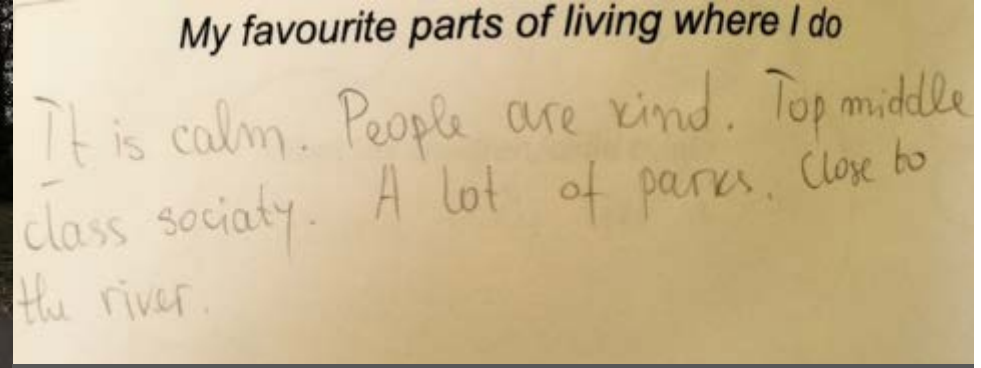 My favourite parts of living where I do
It is calm. People are kind. Top middle
class sociaty. A lot of parks. Close to
the river.